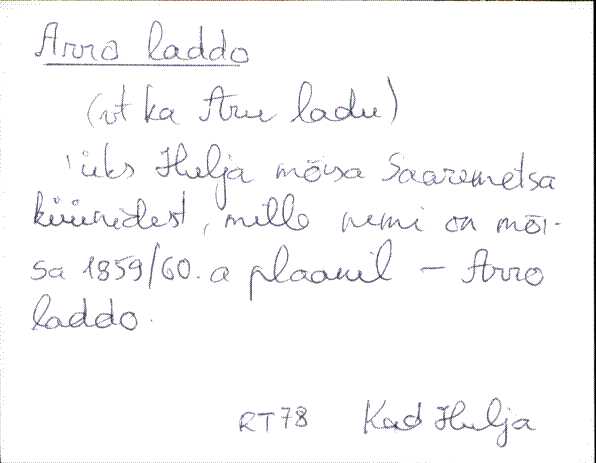 Arro laddo
(vt ka Aru ladu)
üks Hulja mõisa Saaremetsa
küünidest, mille nimi on mõi-
sa 1859/60. a plaanil – Arro
laddo.
RT78 Kad Hulja